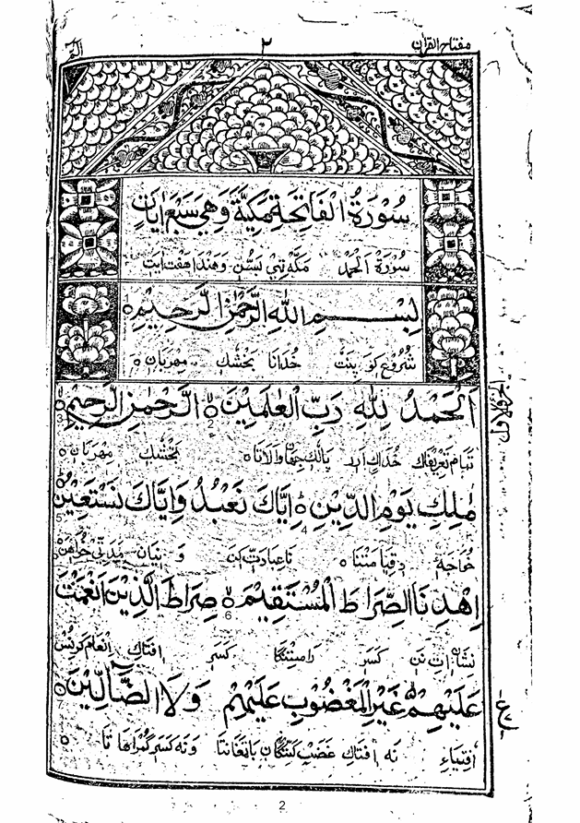 مفتاح القرآن ٢ الٓمّٓ
سُوْرَةُ الْفَاتِحَةِ مَكِّيَّةٌ وَّهِيَ سَبْعُ اٰيَاتٍ
سورة الحمد مکّه ٹي بسُن وهندا هفت ایت
بِسْمِ اللهِ الرَّحْمٰنِ الرَّحِيْمِ
شُروع کو پنٹ خُدانا بخشک مهربان
اَلْحَمْدُ لِلّٰهِ رَبِّ الْعٰلَمِيْنَ ٢ الرَّحْمٰنِ الرَّحِيْمِ ٣
تمام تعریفاک خُداک مالک جهان والانا بخشک مهربان
مٰلِكِ يَوْمِ الدِّيْنِ ٤ اِيَّاكَ نَعْبُدُ وَاِيَّاكَ نَسْتَعِيْنُ 5
خواجه نا عبادت کن و نیان مدتي خواهن
اِهْدِنَا الصِّرَاطَ الْمُسْتَقِيْمَ 6 صِرَاطَ الَّذِيْنَ اَنْعَمْتَ
نشان ات نن کسر راستنگا کسر افتاک انعام کریس
عَلَيْهِمْ غَيْرِ الْمَغْضُوْبِ عَلَيْهِمْ وَلَا الضَّآلِّيْنَ 7
افتیاء نه افتاک غضب کننگان و نه کسر گمراهاتا
2